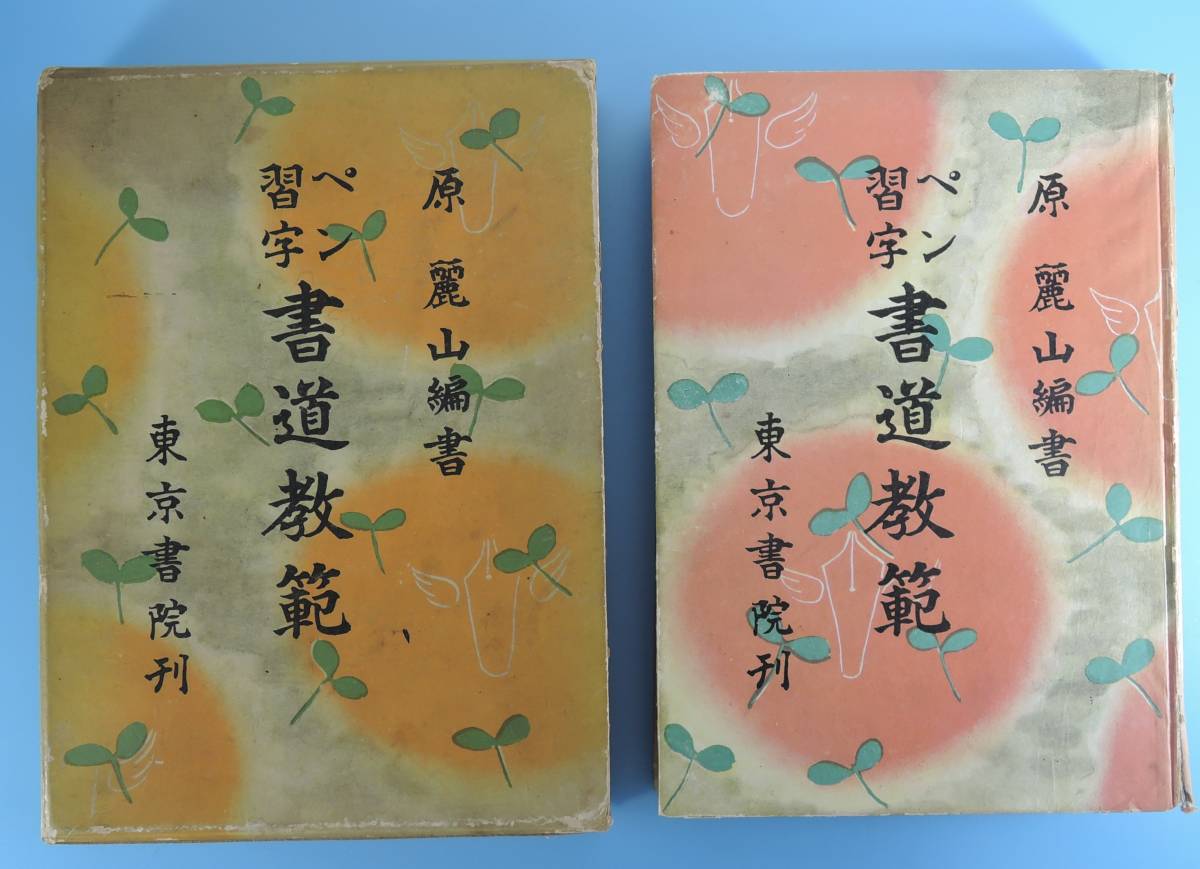 原麗山編書
ペン習字
書道教範
東京書院刊
原麗山編書
ペン習字
書道教範
東京書院刊